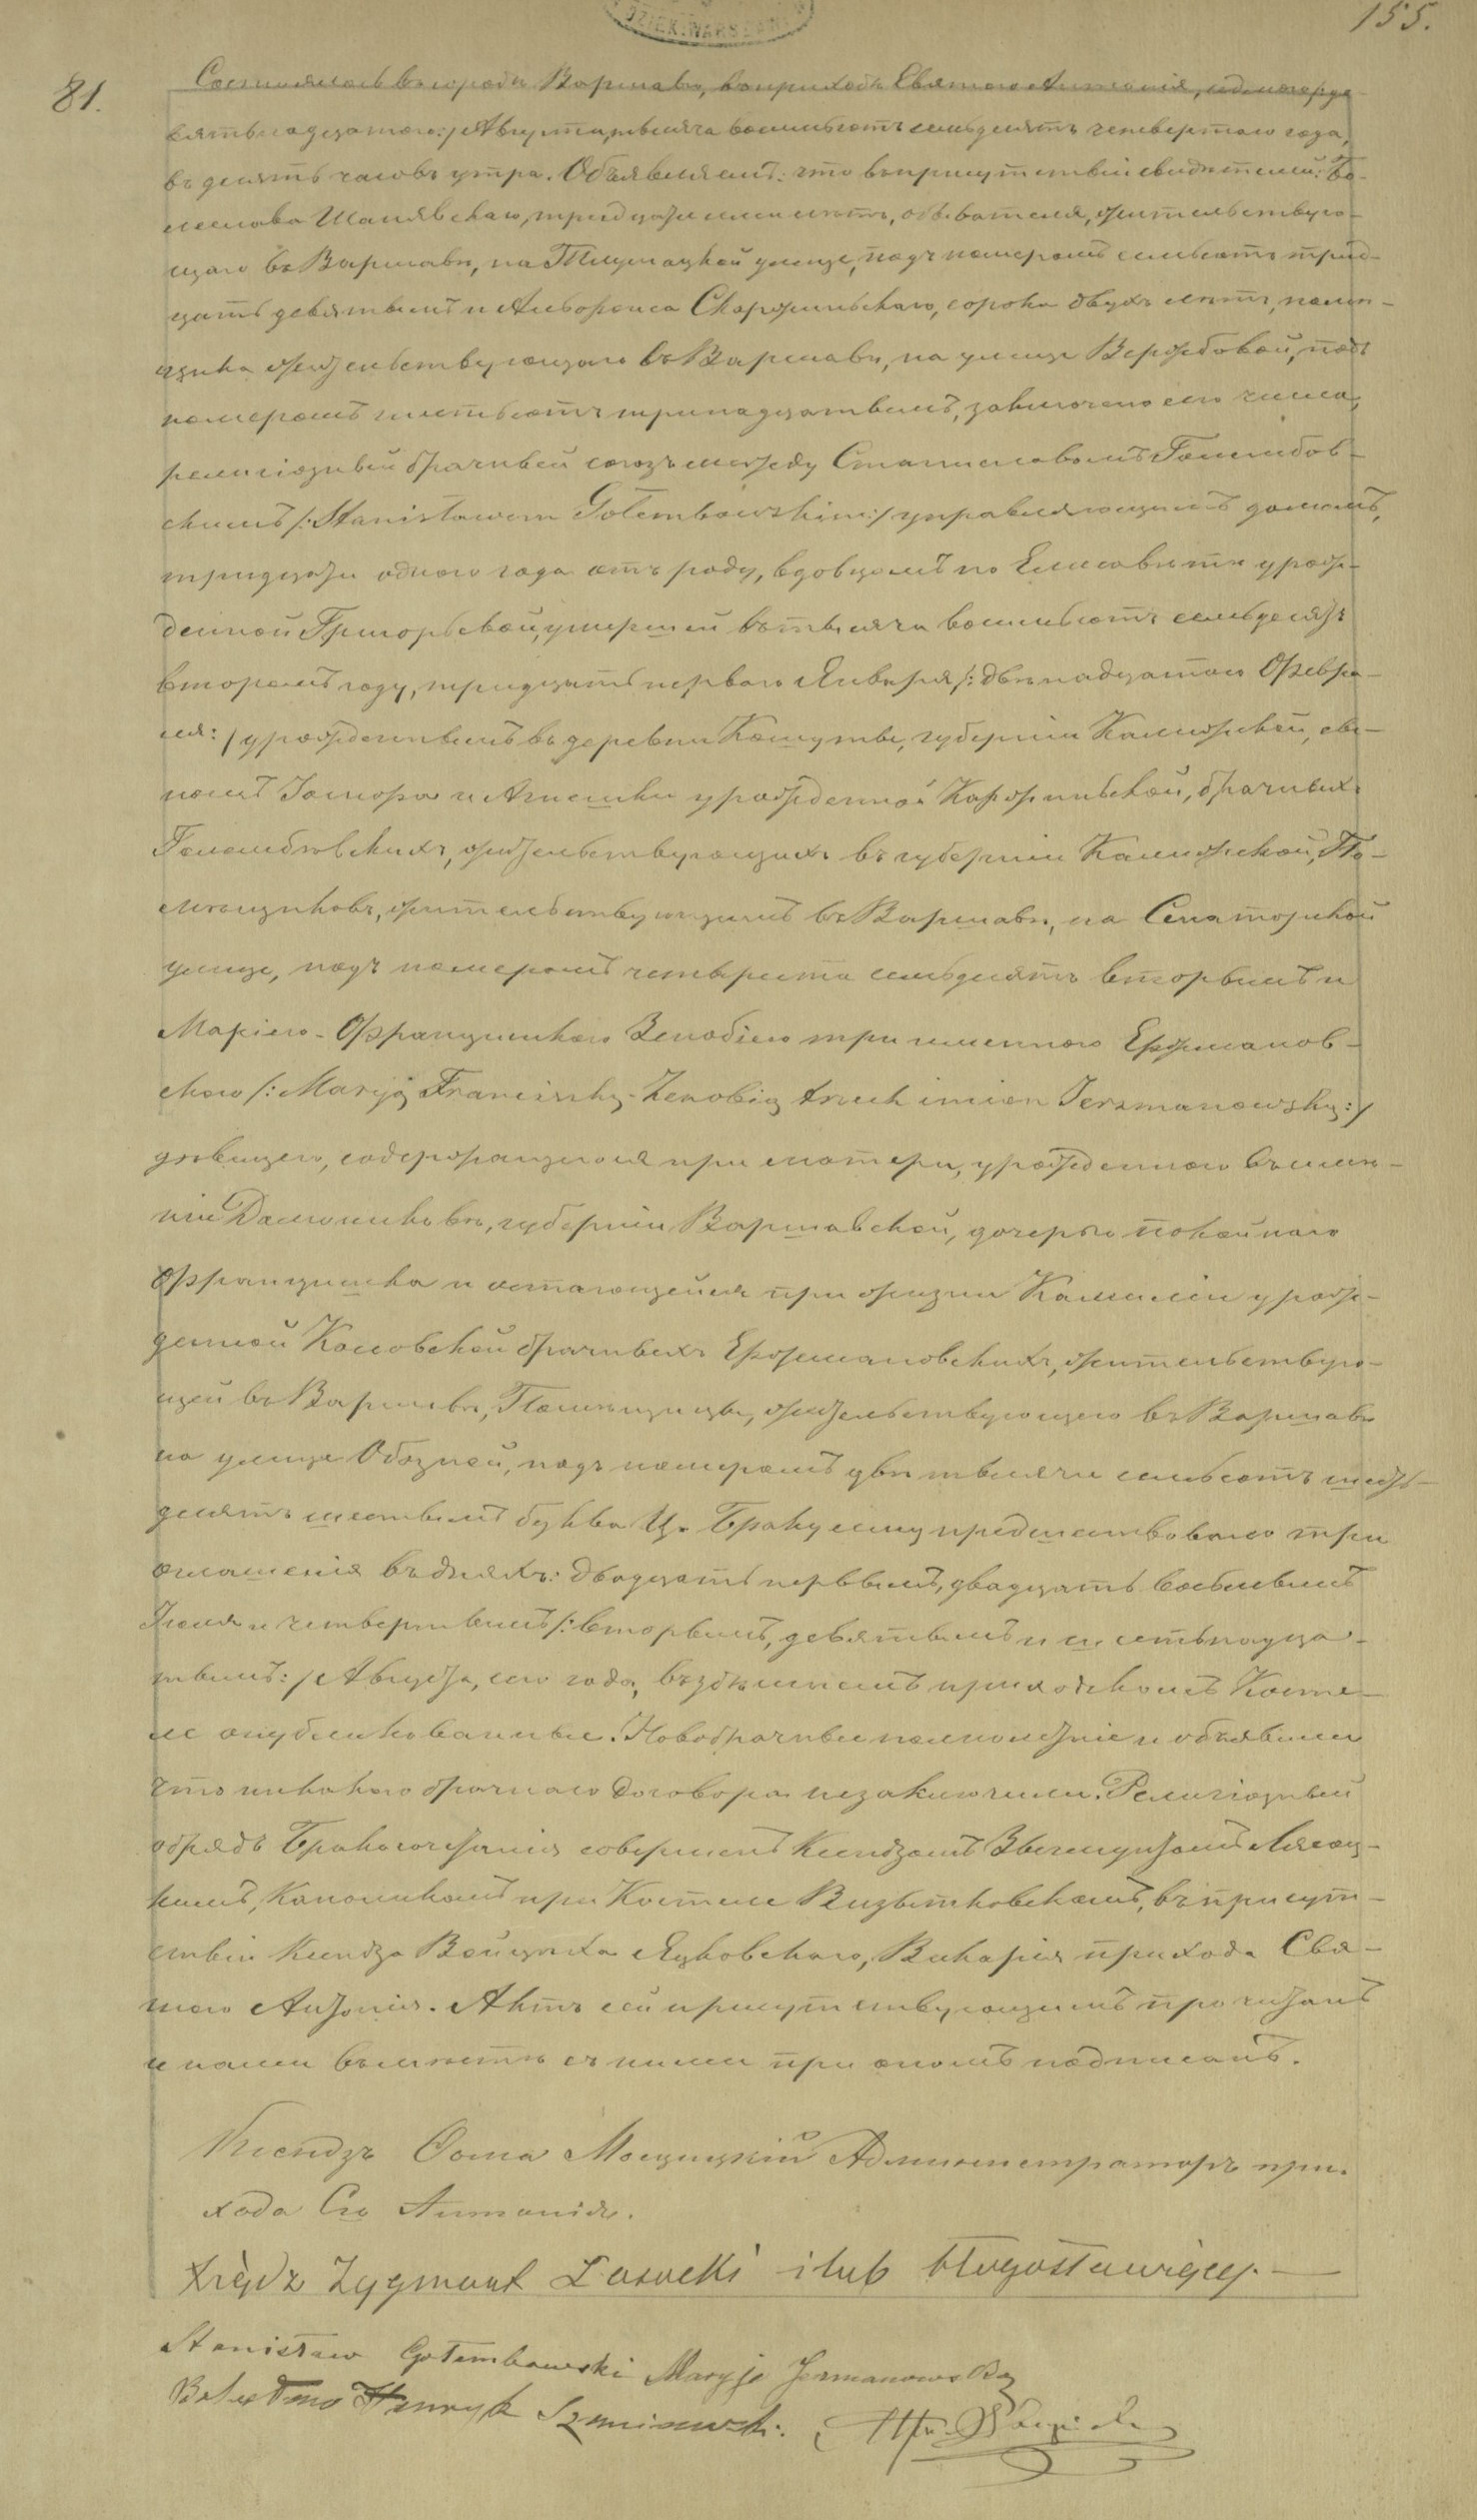 155.
81.
Состоялось въ городѣ Варшавѣ, въ приходѣ Святого Антонія,
Августа, тысяча восемьсотъ семьдесятъ четвертого года,
въ десять часовъ утра. Объявляемъ: что въ присутствіи свидѣтелей: Бо-
леслава Шанявскаго, тридцати лѣтъ, обывателя, жительствую-
щаго въ Варшавѣ, на Тлумацкой улице, подъ номеромъ семьсотъ трид-
цать девятымъ и Скаржинскаго, сорока двухъ лѣтъ, помѣ-
щика жительствующаго въ Варшавѣ, на улице Вержбовой, подъ
номеромъ шестьсотъ тринадцатымъ, заключено сего числа,
религіозный брачный союзъ между Станиславомъ Голембов-
скимъ /:Stanisławem Gołembowskim:/ управляющимъ домомъ,
тридцати одного года отъ роду, вдовцомъ по Елисаветѣ урож-
денной Григорьевой, умершей въ тысяча восемьсотъ семьдесятъ
второмъ году, тридцать первого Января /:двѣнадцатого Февра-
ля:/ урожденнымъ въ деревни губерніи Калишской, сы-
номъ и Агнешки урожденной Каржинской, брачныхъ
Голембовскихъ, жительствующихъ въ губерніи Калишской, По-
мѣщиковъ, жительствующимъ въ Варшавѣ, на Сенаторской
улице, подъ номеромъ четыреста семьдесятъ вторымъ и
Маріею-Францишкою Зенобіею три именною Ержманов-
скою /:Maryją Franciszką-Zenobią trzech imion Jerzmanowską:/
дѣвицею, содержащеюся при матери, урожденною въ имѣ-
ніи губерніи Варшавской, дочерью покойного
Францишка и остающейся при жизни Камилли урож-
денной Коссовской брачныхъ Ержмановскихъ, жительствую-
щей въ Варшавѣ, Помѣщицы, жительствующею въ Варшавѣ
на улице Обозной, подъ номеромъ двѣ тысячи семьсотъ шесть-
десятъ шестымъ буква Ц. Браку сему предшествовало три
оглашенія въ дняхъ: двадцать первымъ, двадцать восьмымъ
Іюля и четвертымъ /:вторымъ, девятымъ и шестьнадца-
тымъ:/ Августа, сего года, въ здѣшнемъ приходскомъ Косте-
ле опубликованные. Новобрачные объявили
что никакого брачного договора незаключили. Религіозный
обрядъ Бракосочетанія совершенъ Ксендзомъ Зыгмунтомъ Лясоц-
кимъ, Каноникомъ при Костеле Визытковскомъ, въ присут-
ствіи Ксендза Войцѣха Викарія прихода Свя-
того Антонія. Актъ сей присутствующимъ прочитанъ
и нами вмѣстѣ съ ними при ономъ подписанъ.
Ксендзъ Ѳома Мощицкій Администраторъ при-
хода Св. Антонія.
Ksiądz Zygmunt Lasocki ślub błogosławiący.
Stanisław Gołembowski Maryja Jerzmanowska
Bolesław Henryk Szaniawski.